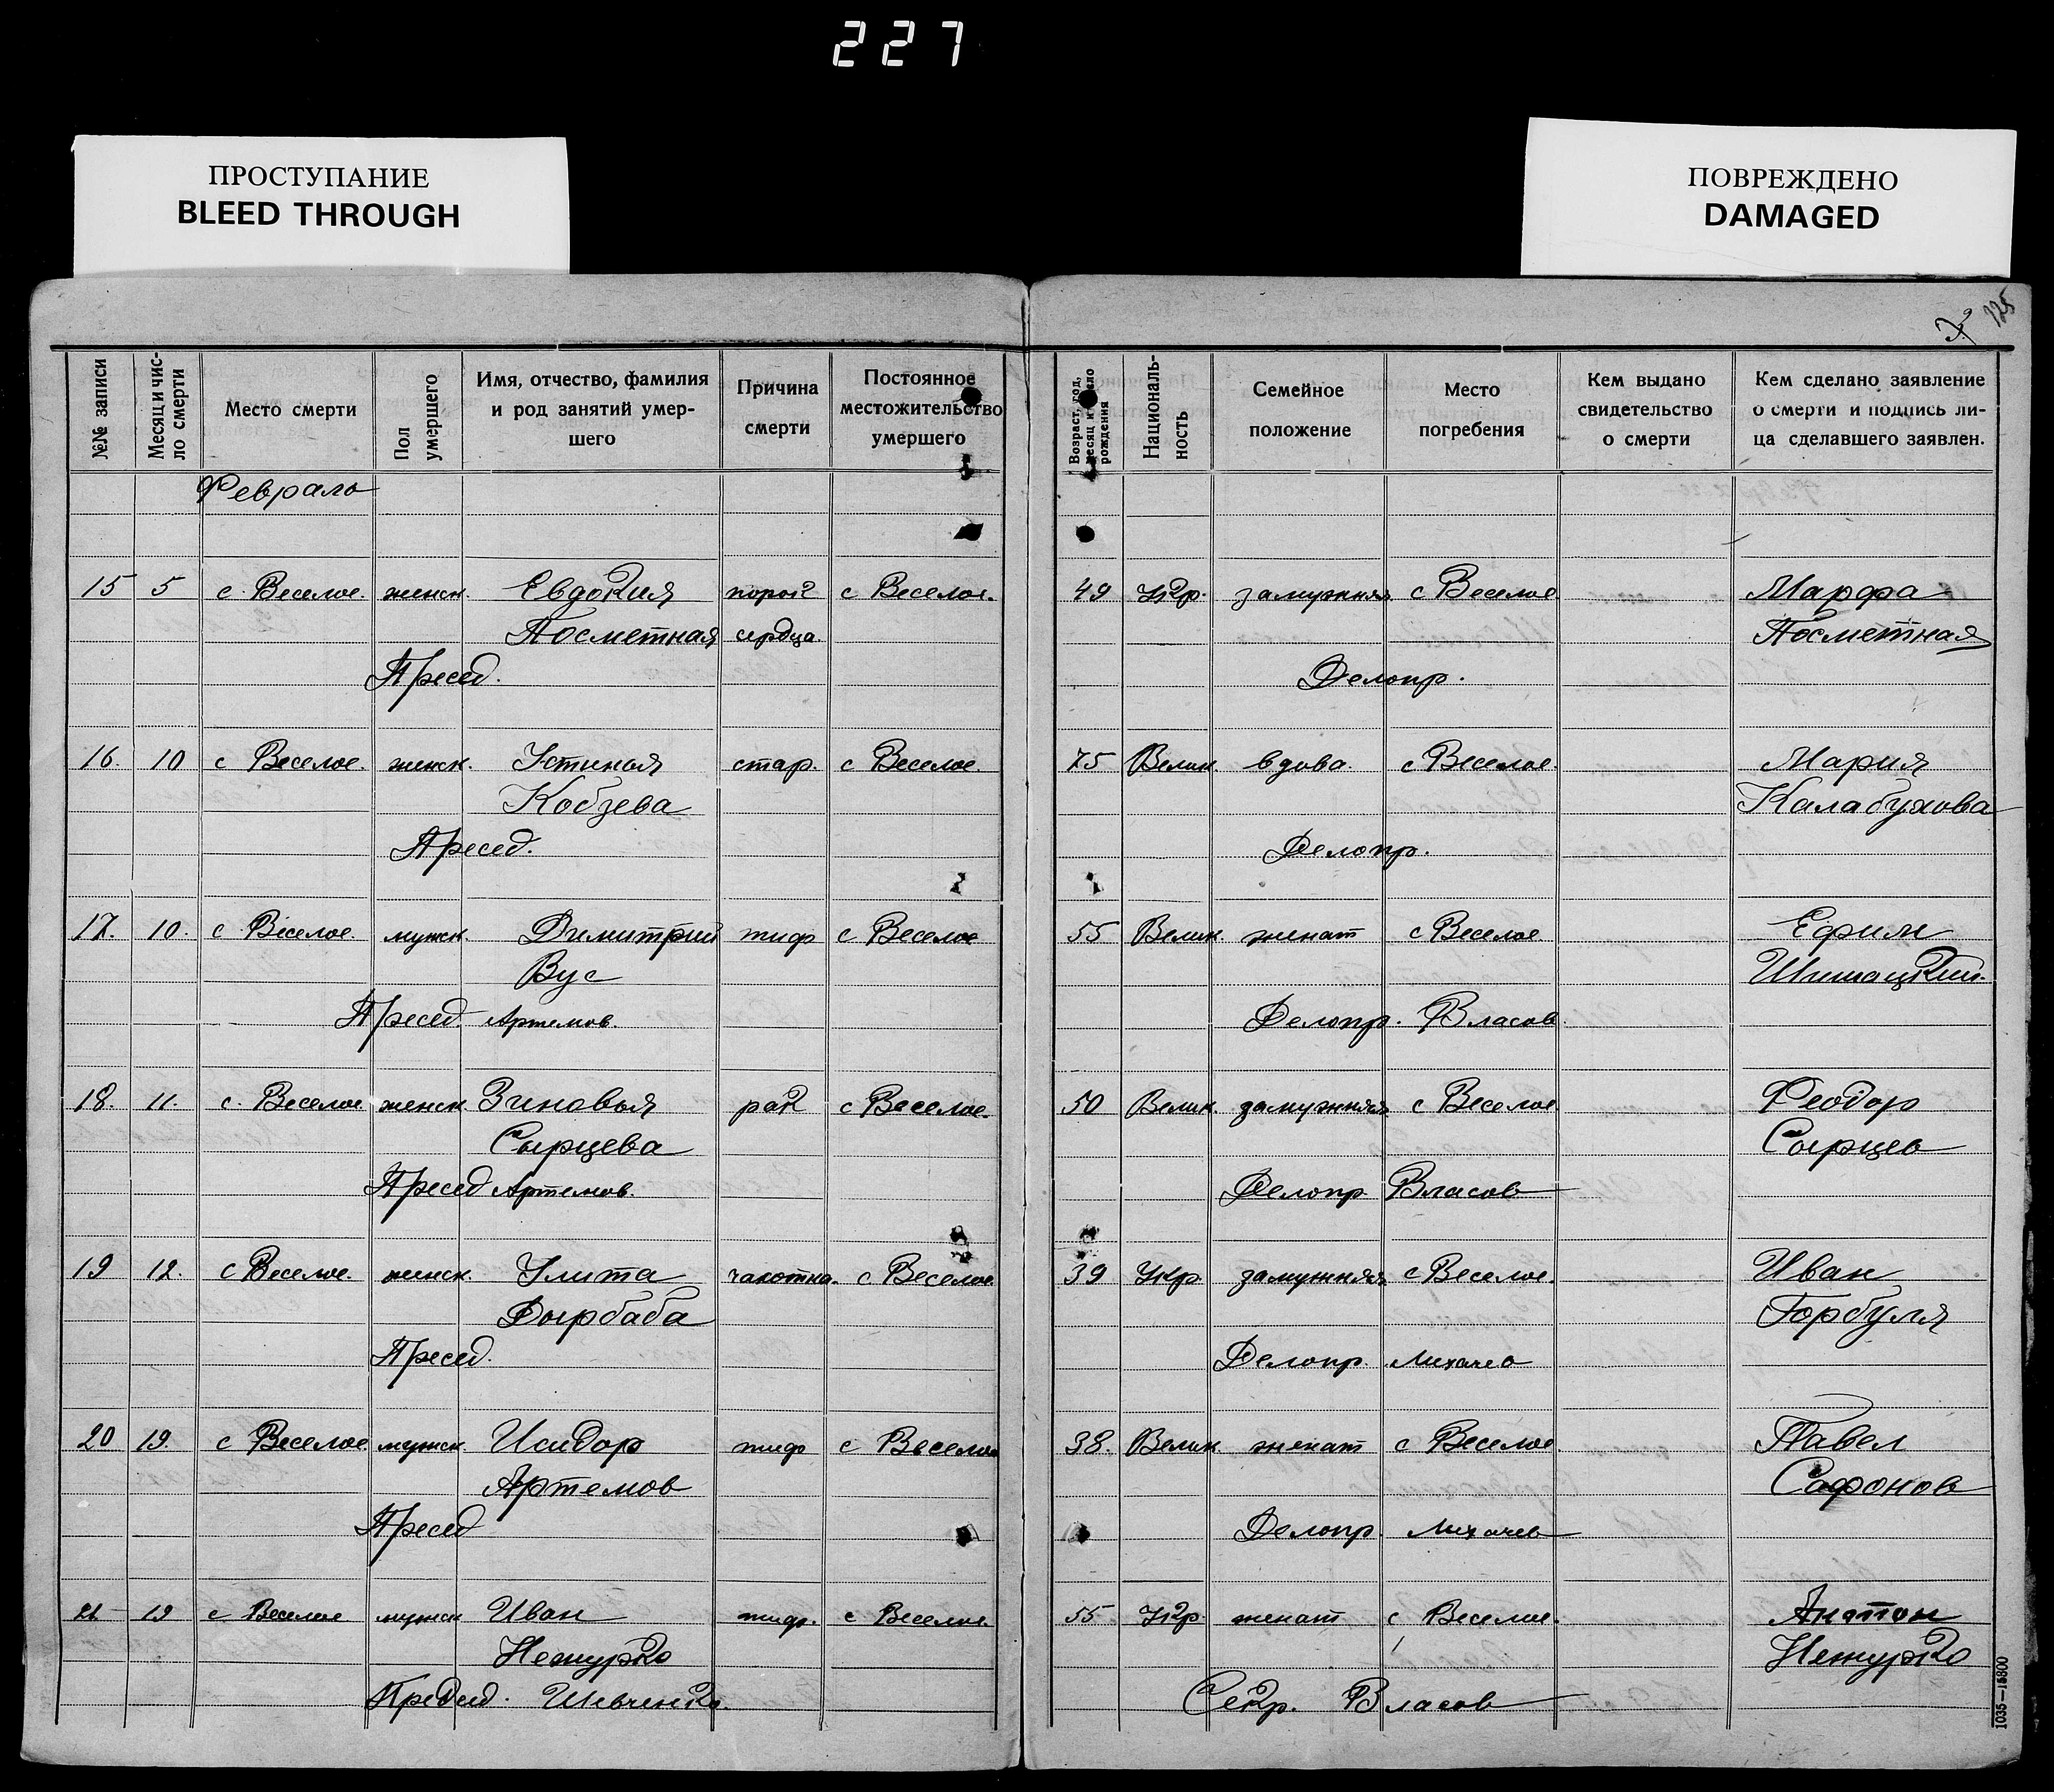 227
ПРОСТУПАНИЕ
BLEED THROUGH
ПОВРЕЖДЕНО
DAMAGED
125
3
№№ записи
Месяц и чис-
ло смерти
Место смерти
Пол
умершего
Имя, отчество, фамилия
и род занятий умер-
шего
Причина
смерти
Постоянное
местожительство
умершего
Возраст, год,
месяц и число
рождения
Националь-
ность
Семейное
положение
Место
погребения
Кем выдано
свидетельство
о смерти
Кем сделано заявление
о смерти и подпись ли-
ца сделавшего заявлен.
Февраль
15 5 с. Веселое. женск. Евдокия порок с Веселое. 49 Укр. замужняя с Веселое Марфа
Посметная сердца Посметная
Пресед. Делопр.
16. 10 с Веселое. женск. Устиная стар. с Веселое. 75 Велик. вдова. с Веселое. Мария
Кобзева Калабухова
Пресед. Делопр.
17. 10. с Веселое. мужск. Димитрий тиф с Веселое 55 Велик. женат с Веселое Ефим
Вус
Пресед. Артемов. Делопр. Власов
18. 11. с. Веселое женск. Зиновья рак с Веселое. 50 Велик. замужняя с Веселое. Феодор
Сырцева Сырцев
Пресед Артемов. Делопр. Власов
19 12. с Веселое. женск. Улита чахотка. с Веселое. 39 Укр. замужняя с Веселое. Иван
Дырбаба Горбуля
Пресед. Делопр. Лихачев
20 19. с Веселое мужск. Исидор тиф с Веселое 38. Велик. женат с Веселое. Павел
Артемов Сафонов
Пресед Делопр. Лихачев
21 19 с Веселое мужск Иван тиф. с Веселое. 55 Укр. женат с Веселое. Антон
Нежурко Нежурко
Председ. Шевченко. Секр. Власов
1035—15800